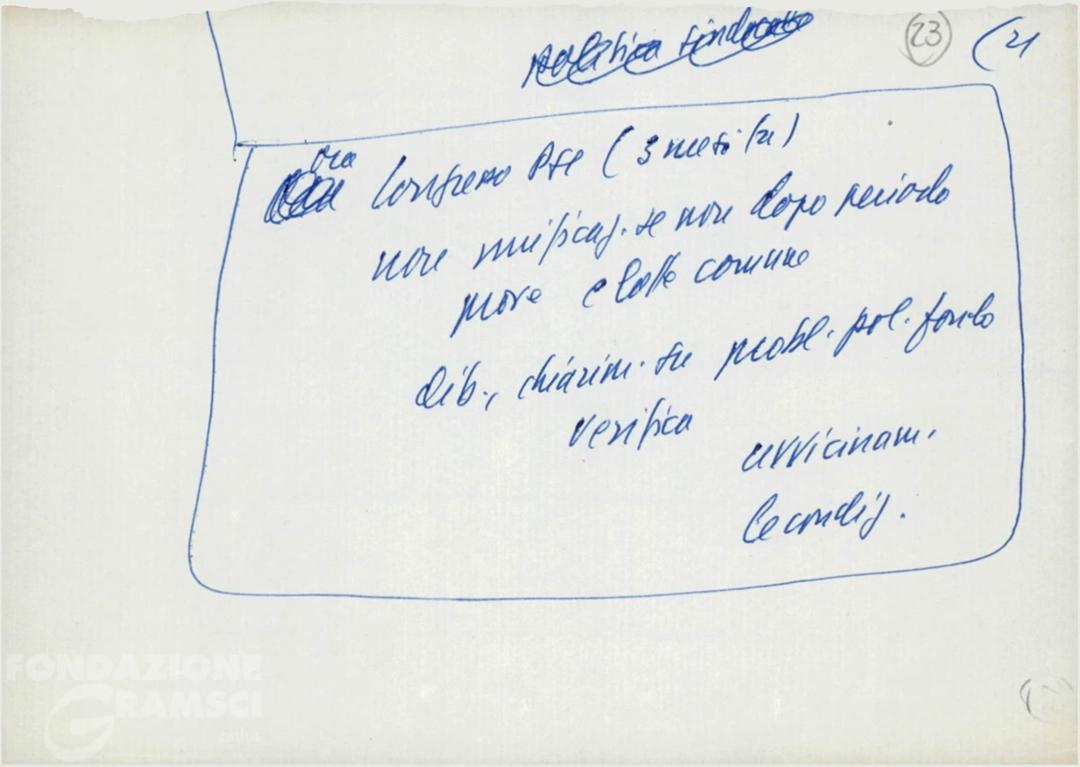 politica sindacale
23
(21
ora Congresso Psi (3 mesi fa)
non unificaz. se non dopo periodo
prove e lotte comune
dib., chiarim. su probl. pol. fondo
verifica
avvicinam.
le condiz.
FONDAZIONE
GRAMSCI
onlus